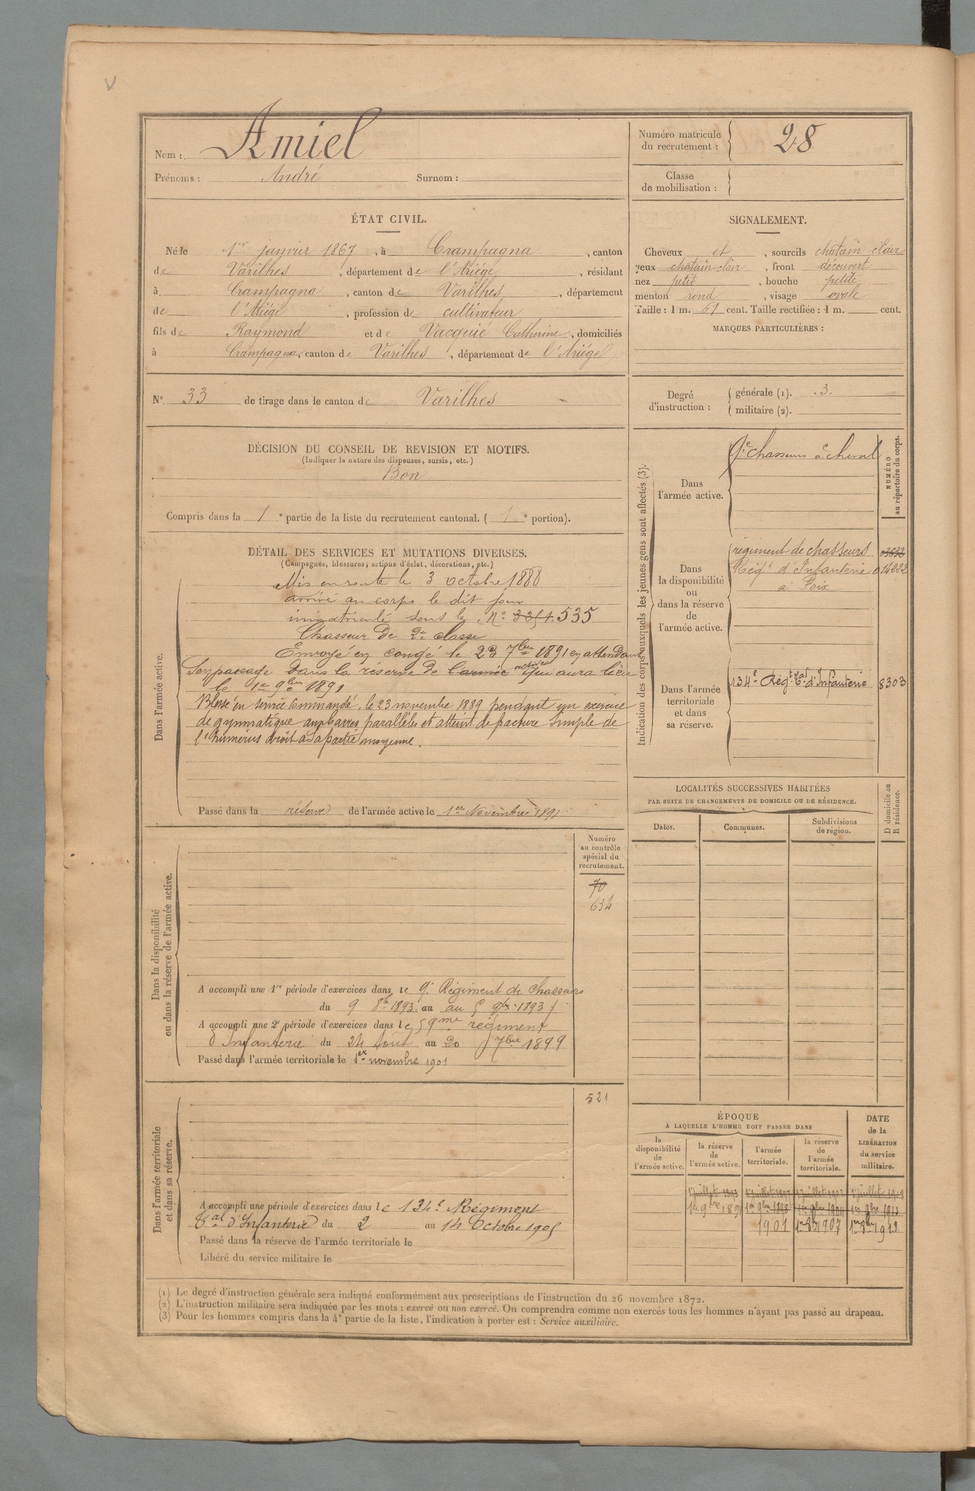 Nom : Amiel
Prénoms : André Surnom :
Numéro matricule du recrutement : 28
Classe de mobilisation :
ÉTAT CIVIL.
Né le 1er janvier 1867, à Crampagna, canton
de Varilhes, département de l'Ariége, résidant
à Crampagna, canton de Varilhes, département
de l'Ariége, profession de cultivateur
fils de Raymond et de Vacquié Catherine, domiciliés
à Crampagna, canton de Varilhes, département de l'Ariége
SIGNALEMENT.
Cheveux et, sourcils chatain clair
yeux chatain clair, front découvert
nez petit, bouche petite
menton rond, visage ovale
Taille : 1 m. 61 cent. Taille rectifiée : 1 m. cent.
MARQUES PARTICULIÈRES :
N° 33 de tirage dans le canton de Varilhes
Degré d'instruction :
générale (1). 3.
militaire (2).
DÉCISION DU CONSEIL DE REVISION ET MOTIFS.
(Indiquer la nature des dispenses, sursis, etc.)
Bon
Compris dans la 1e partie de la liste du recrutement cantonal. (1e portion).
DÉTAIL DES SERVICES ET MUTATIONS DIVERSES.
(Campagnes, blessures, actions d'éclat, décorations, etc.)
Dans l'armée active.
Mis en route le 3 octobre 1888
arrivé au corps le dit jour
immatriculé sous le N° 535
Chasseur de 2e classe
Envoyé en congé le 23 7bre 1891 en attendant
Son passage dans la réserve de l'armée active qui aura lieu
le 1er 9bre 1891
Blessé en service commandé, le 23 novembre 1889 pendant un exercice
de gymnatique aux barres parallèles et atteint de fracture simple de
l'humérus droit à sa partie moyenne.
Passé dans la réserve de l'armée active le 1er Novembre 1891
Indication des corps auxquels les jeunes gens sont affectés (3).
NUMÉRO au répertoire du corps.
Dans l'armée active.
9e chasseurs à cheval
Dans la disponibilité ou dans la réserve de l'armée active.
régiment de chasseurs
Régt d'Infanterie
à Foix
Dans l'armée territoriale et dans sa réserve.
134e Régt Tal d'Infanterie 8303
LOCALITÉS SUCCESSIVES HABITÉES
PAR SUITE DE CHANGEMENTS DE DOMICILE OU DE RÉSIDENCE.
Dates. Communes. Subdivisions de région. D domicile ou R résidence.
Numéro au contrôle spécial du recrutement.
70
634
Dans la disponibilité ou dans la réserve de l'armée active.
A accompli une 1re période d'exercices dans le 9e Régiment de Chasseurs
du 9 8bre 1893 au 5 9bre 1893
A accompli une 2e période d'exercices dans le 59me régiment
d'Infanterie du 24 Août au 20 7bre 1899
Passé dans l'armée territoriale le 1er novembre 1901
521
Dans l'armée territoriale et dans sa réserve.
A accompli une période d'exercices dans le 134e Régiment
Tal d'Infanterie du 2 au 14 Octobre 1905
Passé dans la réserve de l'armée territoriale le
Libéré du service militaire le
ÉPOQUE
À LAQUELLE L'HOMME DOIT PASSER DANS
la disponibilité de l'armée active.
la réserve de l'armée active.
l'armée territoriale.
la réserve de l'armée territoriale.
DATE de la LIBÉRATION du service militaire.
1901 1907
(1) Le degré d'instruction générale sera indiqué conformément aux prescriptions de l'instruction du 26 novembre 1872.
(2) L'instruction militaire sera indiquée par les mots : exercé ou non exercé. On comprendra comme non exercés tous les hommes n'ayant pas passé au drapeau.
(3) Pour les hommes compris dans la 4e partie de la liste, l'indication à porter est : Service auxiliaire.